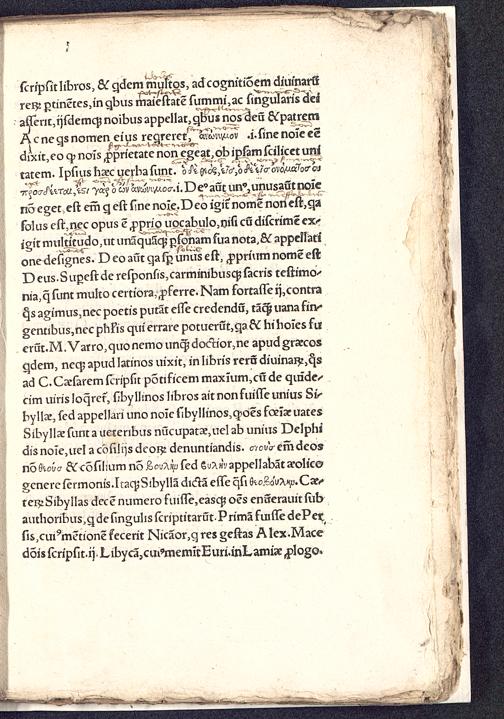 scripsit libros, & q̄dem multos, ad cognitiōem diuinarū
rerꝝ ꝑtinētes, in qbus maiestatē summi, ac singularis dei
asserit, ijsdemq; noibus appellat, qbus nos deū & patrem
Ac ne qs nomen eius reqreret, ανώνιμον .i. sine noīe eē
dixit, eo ꝙ noīs ꝓprietate non egeat, ob ipsam scilicet uni
tatem. Ipsius hæc uerba sunt. ὁ δὲ θιὸς, εἱσ, ὁ δὲ εἱσ ονόματος ου
προσδέεται, ἔςι γὰρ ὁ ὢν ανώνιμοσ .i. Deꝰ aūt unꝰ, unusaūt noīe
nō eget, est em̄ q est sine noīe. Deo igit̄ nomē non est, qa
solus est, nec opus ē ꝓprio uocabulo, nisi cū discrimē ex⸗
igit multitudo, ut unāquāq; ꝑsonam sua nota, & appellati
one designes. Deo aūt qa sꝑ unus est, ꝓprium nomē est
Deus. Suꝑest de responsis, carminibusq; sacris testimo⸗
nia, q̄ sunt multo certiora, ꝓferre. Nam fortasse ij, contra
q̄s agimus, nec poetis putāt esse credendū, tāq̄ uana fin⸗
gentibus, nec phīs qui errare potuerūt, qa & hi hoīes fu
erūt. M. Varro, quo nemo unq̄ doctior, ne apud græcos
qdem, necq; apud latinos uixit, in libris rerū diuinaꝝ, q̄s
ad C. Cæsarem scripsit pōtificem maxīum, cū de quīde⸗
cim uiris loq̄ret̄, sibyllinos libros ait non fuisse unius Si⸗
byllæ, sed appellari uno noīe sibyllinos, ꝙ oēs fœīæ uates
Sibyllæ sunt a ueteribus nūcupatæ, uel ab unius Delphi
dis noīe, uel a cōsilijs deoꝝ denuntiandis. σιοὺσ em̄ deos
nō θιοὺσ & cōsilium nō βουλὴν sed βυλὴν appellabāt æolico
genere sermonis. Itaq; Sibyllā dictā esse q̄si θιοβούλην. Cæ⸗
teꝝ Sibyllas decē numero fuisse, easq; oēs enūerauit sub
authoribus, q de singulis scriptitarūt. Primā fuisse de Per
sis, cuiꝰ mētionē fecerit Nicāor, q res gestas Alex. Mace
dōis scripsit. ij. Libycā, cuiꝰ memīt Euri. in Lamiæ ꝓlogo.